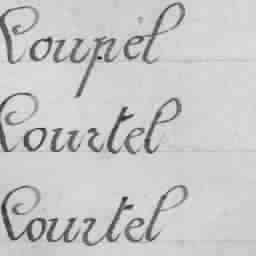 Coupel
Courtel
Courtel